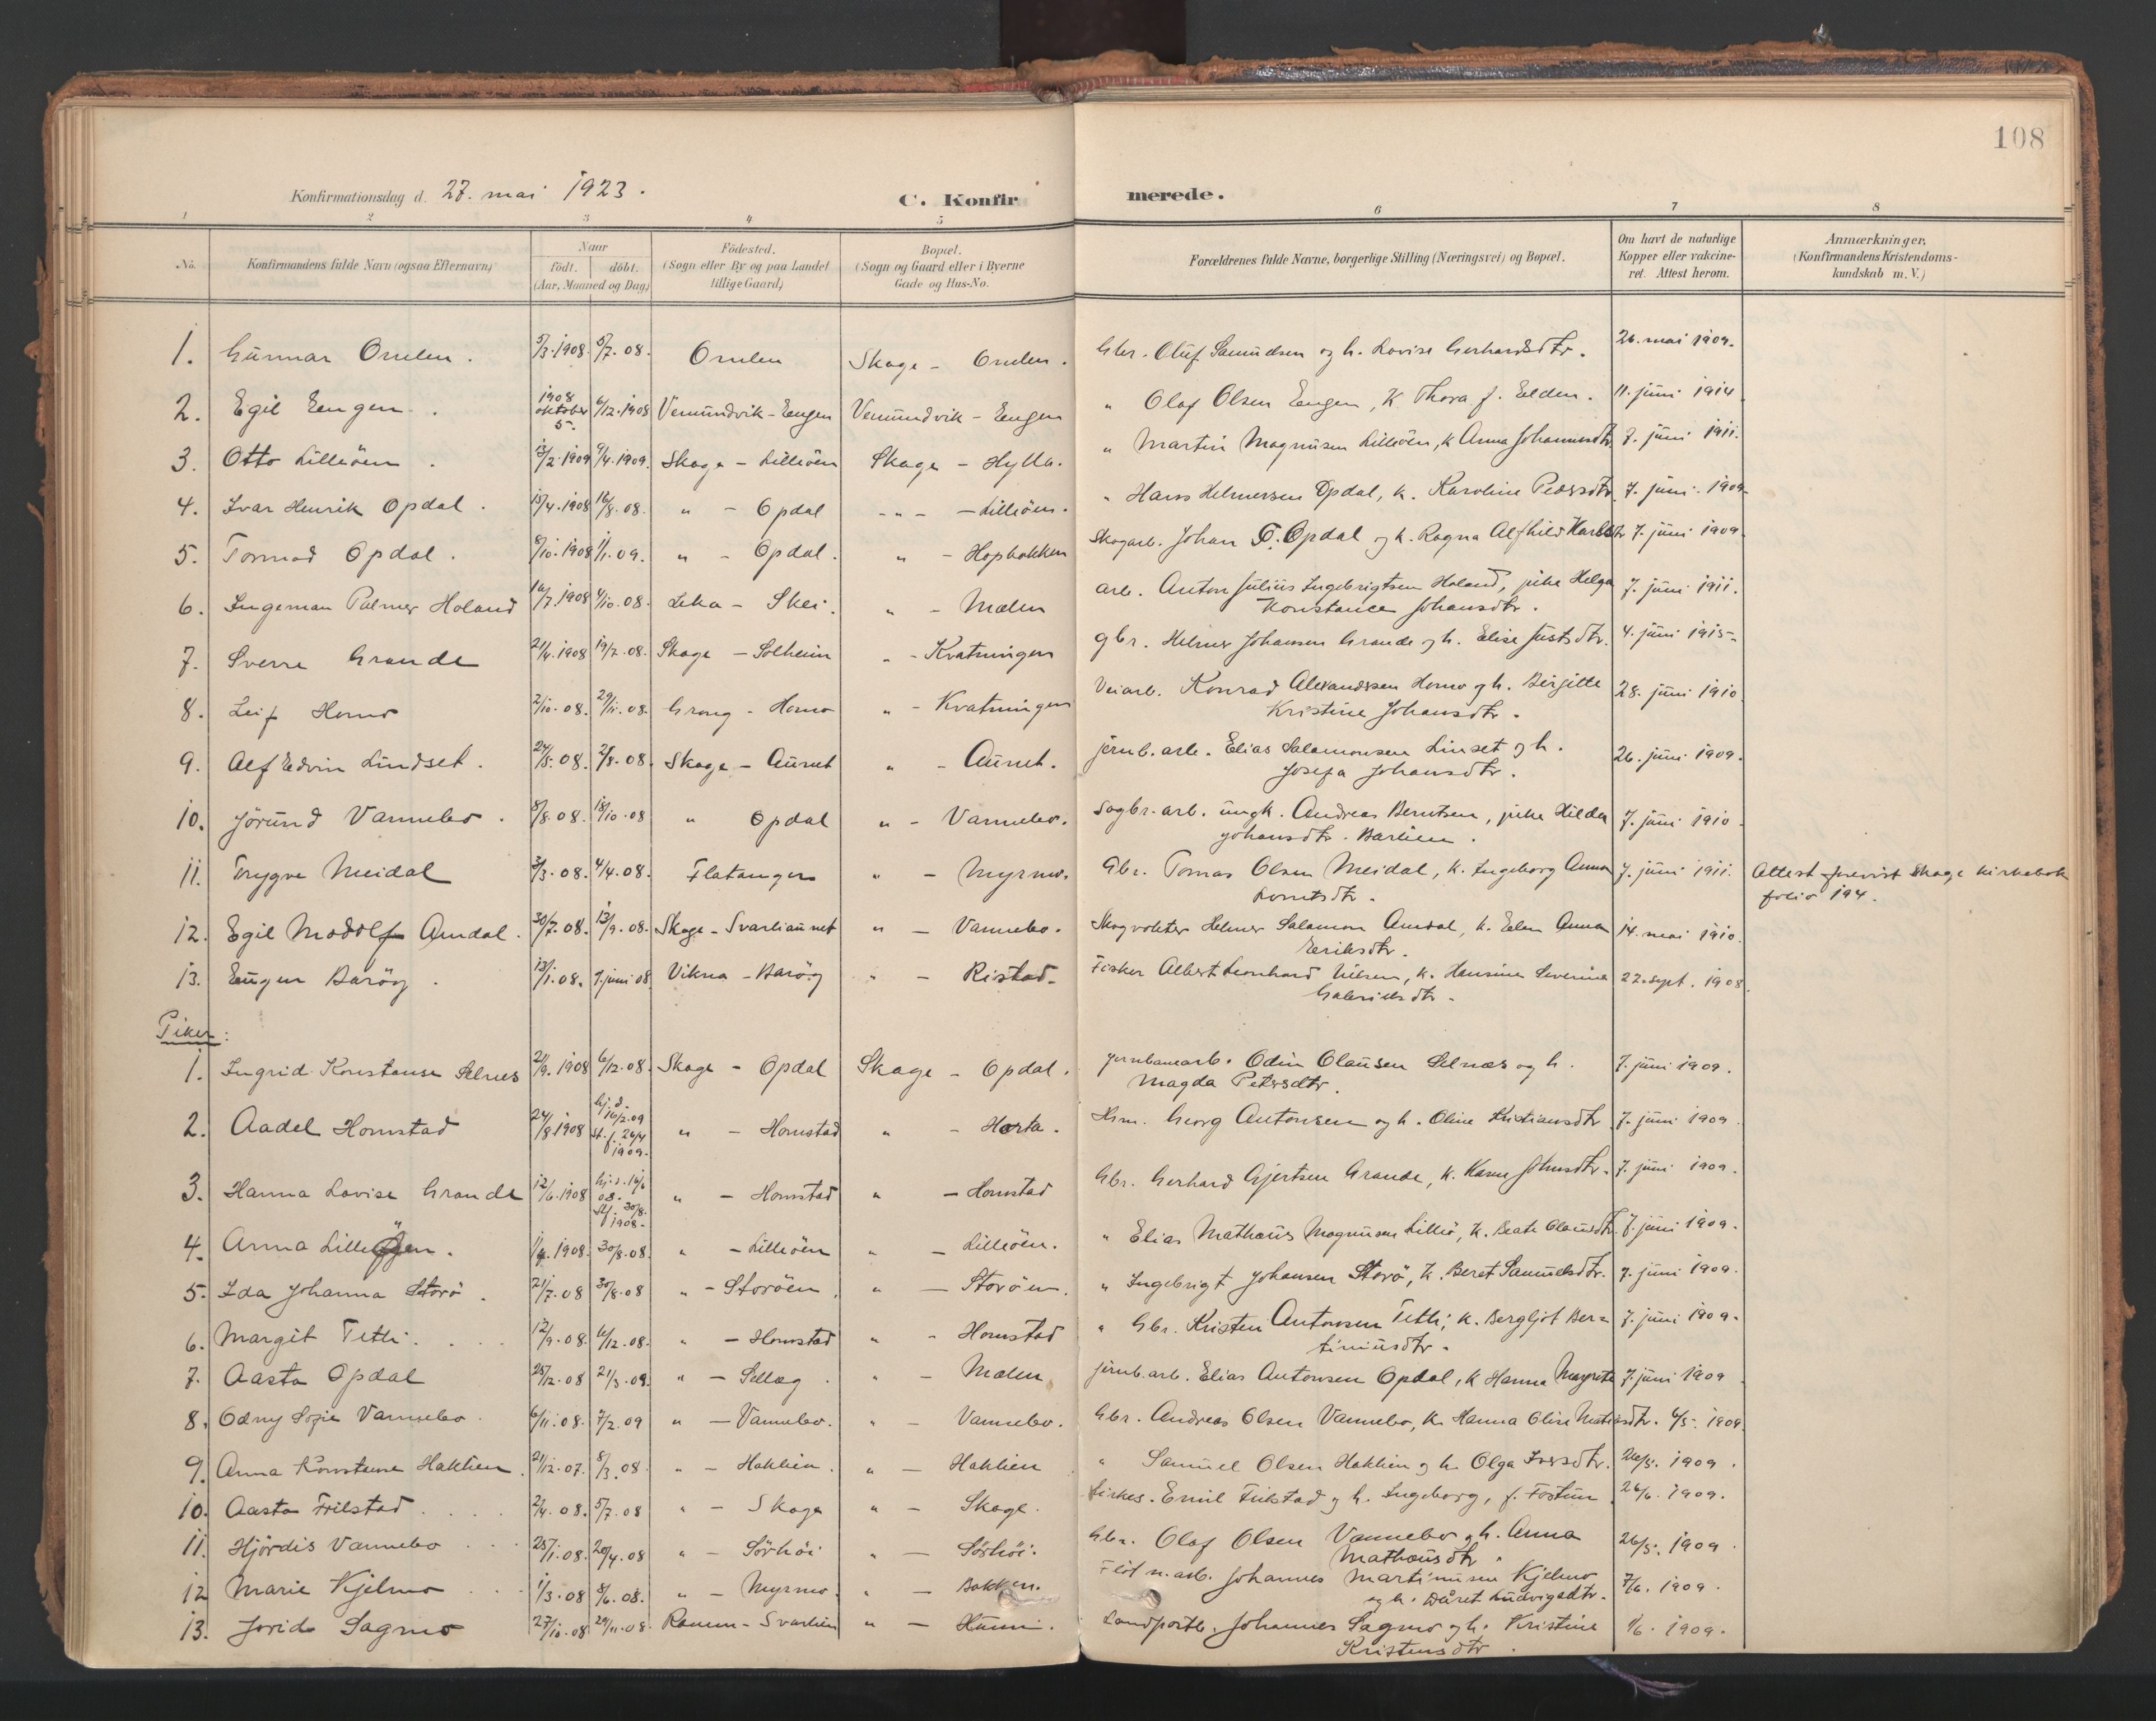 108
Konfirmationsdag d. 27. mai 1923.
C. Konfirmerede.
1 2 3 4 5 6 7 8
No.
Konfirmandens fulde Navn (ogsaa Efternavn)
Naar
födt. döbt.
(Aar, Maaned og Dag)
Födested.
(Sogn eller By og paa Landet
tillige Gaard)
Bopæl.
(Sogn og Gaard eller i Byerne
Gade og Hus-No.
Forældrenes fulde Navne, borgerlige Stilling (Næringsvei) og Bopæl.
Om havt de naturlige
Kopper eller vakcine-
ret. Attest herom.
Anmærkninger,
(Konfirmandens Kristendoms-
kundskab m. V.)
1. Gunnar Omlen. 5/3.1908 5/7.08. Omlen Skage - Omlen. Gbr. Oluf Samuelsen og h. Lovise Gerhardsdtr. 26. mai 1909.
2. Egil Eengen. 1908 oktober 5. 6/12.1908 Vemundvik - Eengen Vemundvik - Eengen " Olaf Olsen Eengen, K. Thora f. Eelden. 11. juni 1914
3. Otto Lilleöen. 13/2.1909 9/4.1909. Skage - Lilleöen Skage - Hylla. " Martin Magnusen Lilleöen, K. Anna Johannesdtr. 7. juni 1911.
4. Ivar Henrik Opdal. 15/4.1908 16/8.08. " - Opdal - " - - Lilleöen. " Hans Helmersen Opdal, k. Karoline Pedersdtr. 7. juni. 1909.
5. Tormod Opdal. 9/10.1908 1/1.09. " - Opdal. " - Hopbakken Skogarb. Johan Opdal og h. Ragna Alfhild Karlsdtr 7. juni 1909.
6. Ingeman Palmer Holand 16/7.1908 4/10.08. Leka - Skei. " - Mælen arb. Anton Julius Ingebrigtsen Holand, pike Helga
Konstance Johansdtr. 7. juni 1911.
7. Sverre Grande 21/4.1908 19/7.08. Skage - Solheim " - Kvatningen gbr. Helmer Johansen Grande og h. Elise Justsdtr. 4. juni 1915
8. Leif Homo 2/10.08. 29/11.08. Grong - Homo " - Kvatningen Veiarb. Konrad Alexandersen Homo og h. Birgitte
Kristine Johansdtr. 28. juni 1910
9. Alf Edvin Lindset. 24/5.08. 2/8.08. Skage - Aunet " - Aunet. jernb. arb. Elias Salamonsen Linset og h.
Josefa Johansdtr. 26. juni 1909.
10. Jörund Vannebo. 8/8.08. 18/10.08 " Opdal " - Vannebo. Sagbr. arb. ungk. Andreas Berntsen, pike Hilda
Johansdtr. Barlien. 7. juni 1910
11. Trygve Meidal 3/3.08. 4/4.08. Flatanger " - Myrmo. Gbr. Tomas Olsen Meidal, k. Ingeborg Anna
Lorntsdtr. 7. juni 1911. Attest forevist Skage kirkebok
folio 194.
12. Egil Modolf Amdal. 30/7.08. 13/9.08. Skage - Svarliaunet " - Vannebo. Skogvokter Helmer Salamon Amdal, k. Anna
Eriksdtr. 14. mai 1910.
13. Eugen Baröy. 13/1.08. 7. juni 08. Vikna - Baröy " - Ristad. Fisker Albert Leonhard Nilsen, k. Hansine Severine
Gabrielsdtr. 22. sept. 1908.
Piker:
1. Ingrid Konstanse Selnes 21/9.1908 6/12.08. Skage - Opdal Skage - Opdal. Jernbanearb. Odin Olausen Selnæs og h.
Magda Petersdtr. 7. juni 1909.
2. Aadel Homstad 24/8.1908 hj. d. 16/2.09 st. f. 26/4 1909. " - Homstad " - Horta. Georg Antonsen og h. Oline Kristiansdtr. 7. juni 1909.
3. Hanna Lovise Grande 12/6.1908 hj. d. 16/6 08. st. f. 30/8. 1908. " - Homstad " - Homstad Gbr. Gerhard Gjertsen Grande, k. Johnsdtr. 7. juni 1909.
4. Anna Lilleöen. 1908. 30/8.08. " - Lilleöen " - Lilleöen. " Elias Mathæus Magnusen Lilleö, k. Beate Olausdtr. 7. juni 1909.
5. Ida Johanna Storö. 21/7.08 30/8.08 " - Storöen. " - Storöen. " Ingebrigt Johansen Storö, k. Beret Samuelsdtr. 7. juni 1909.
6. Margit Tetli. 12/9.08. 6/12.08. " - Homstad " - Homstad " Gbr. Kristen Antonsen Tetli, k. Bergljot Ber-
tiniusdtr. 7. juni 1909.
7. Aasta Opdal 25/12.08 21/3.09. " - Sellæg. " - Mælen jernb. arb. Elias Antonsen Opdal, k. Hanna Margrete 7. juni 1909
8. Odny Sofie Vannebo. 6/11.08. 7/2.09 " - Vannebo. " - Vannebo. Gbr. Andreas Olsen Vannebo, k. Hanna Elise 6/5. 1909.
9. Anna Konstanse Haklien. 21/12.07. 8/3.08. " - Haklien. " - Haklien " Samuel Olsen Haklien og h. Olga Iversdtr. 26/5. 1909.
10. Aasta Frilstad. 2/4.08. 5/7.08 " - Skage " - Skage. Emil Frilstad og h. Ingeborg, f. 26/6. 1909.
11. Hjördis Vannebo. 25/1.08. 20/4.08 " - Sörhöi " - Sörhöi. Gbr. Olaf Olsen Vannebo og h. Anna
Mathæusdtr. 26/5. 1909.
12 Marie Kjelmo. 1/3.08 8/6.08. " - Myrmo. " - Bakken. Flöt n. arb. Johannes Martinusen Kjelmo
og h. Ludvigsdtr. 7/6. 1909.
13. Jorid Sagmo 27/10.08 29/11.08. Ranem - Svarlien " - Hunn. Landpostb. Johannes Sagmo og h. Kristine
Kristensdtr. 1/6. 1909.